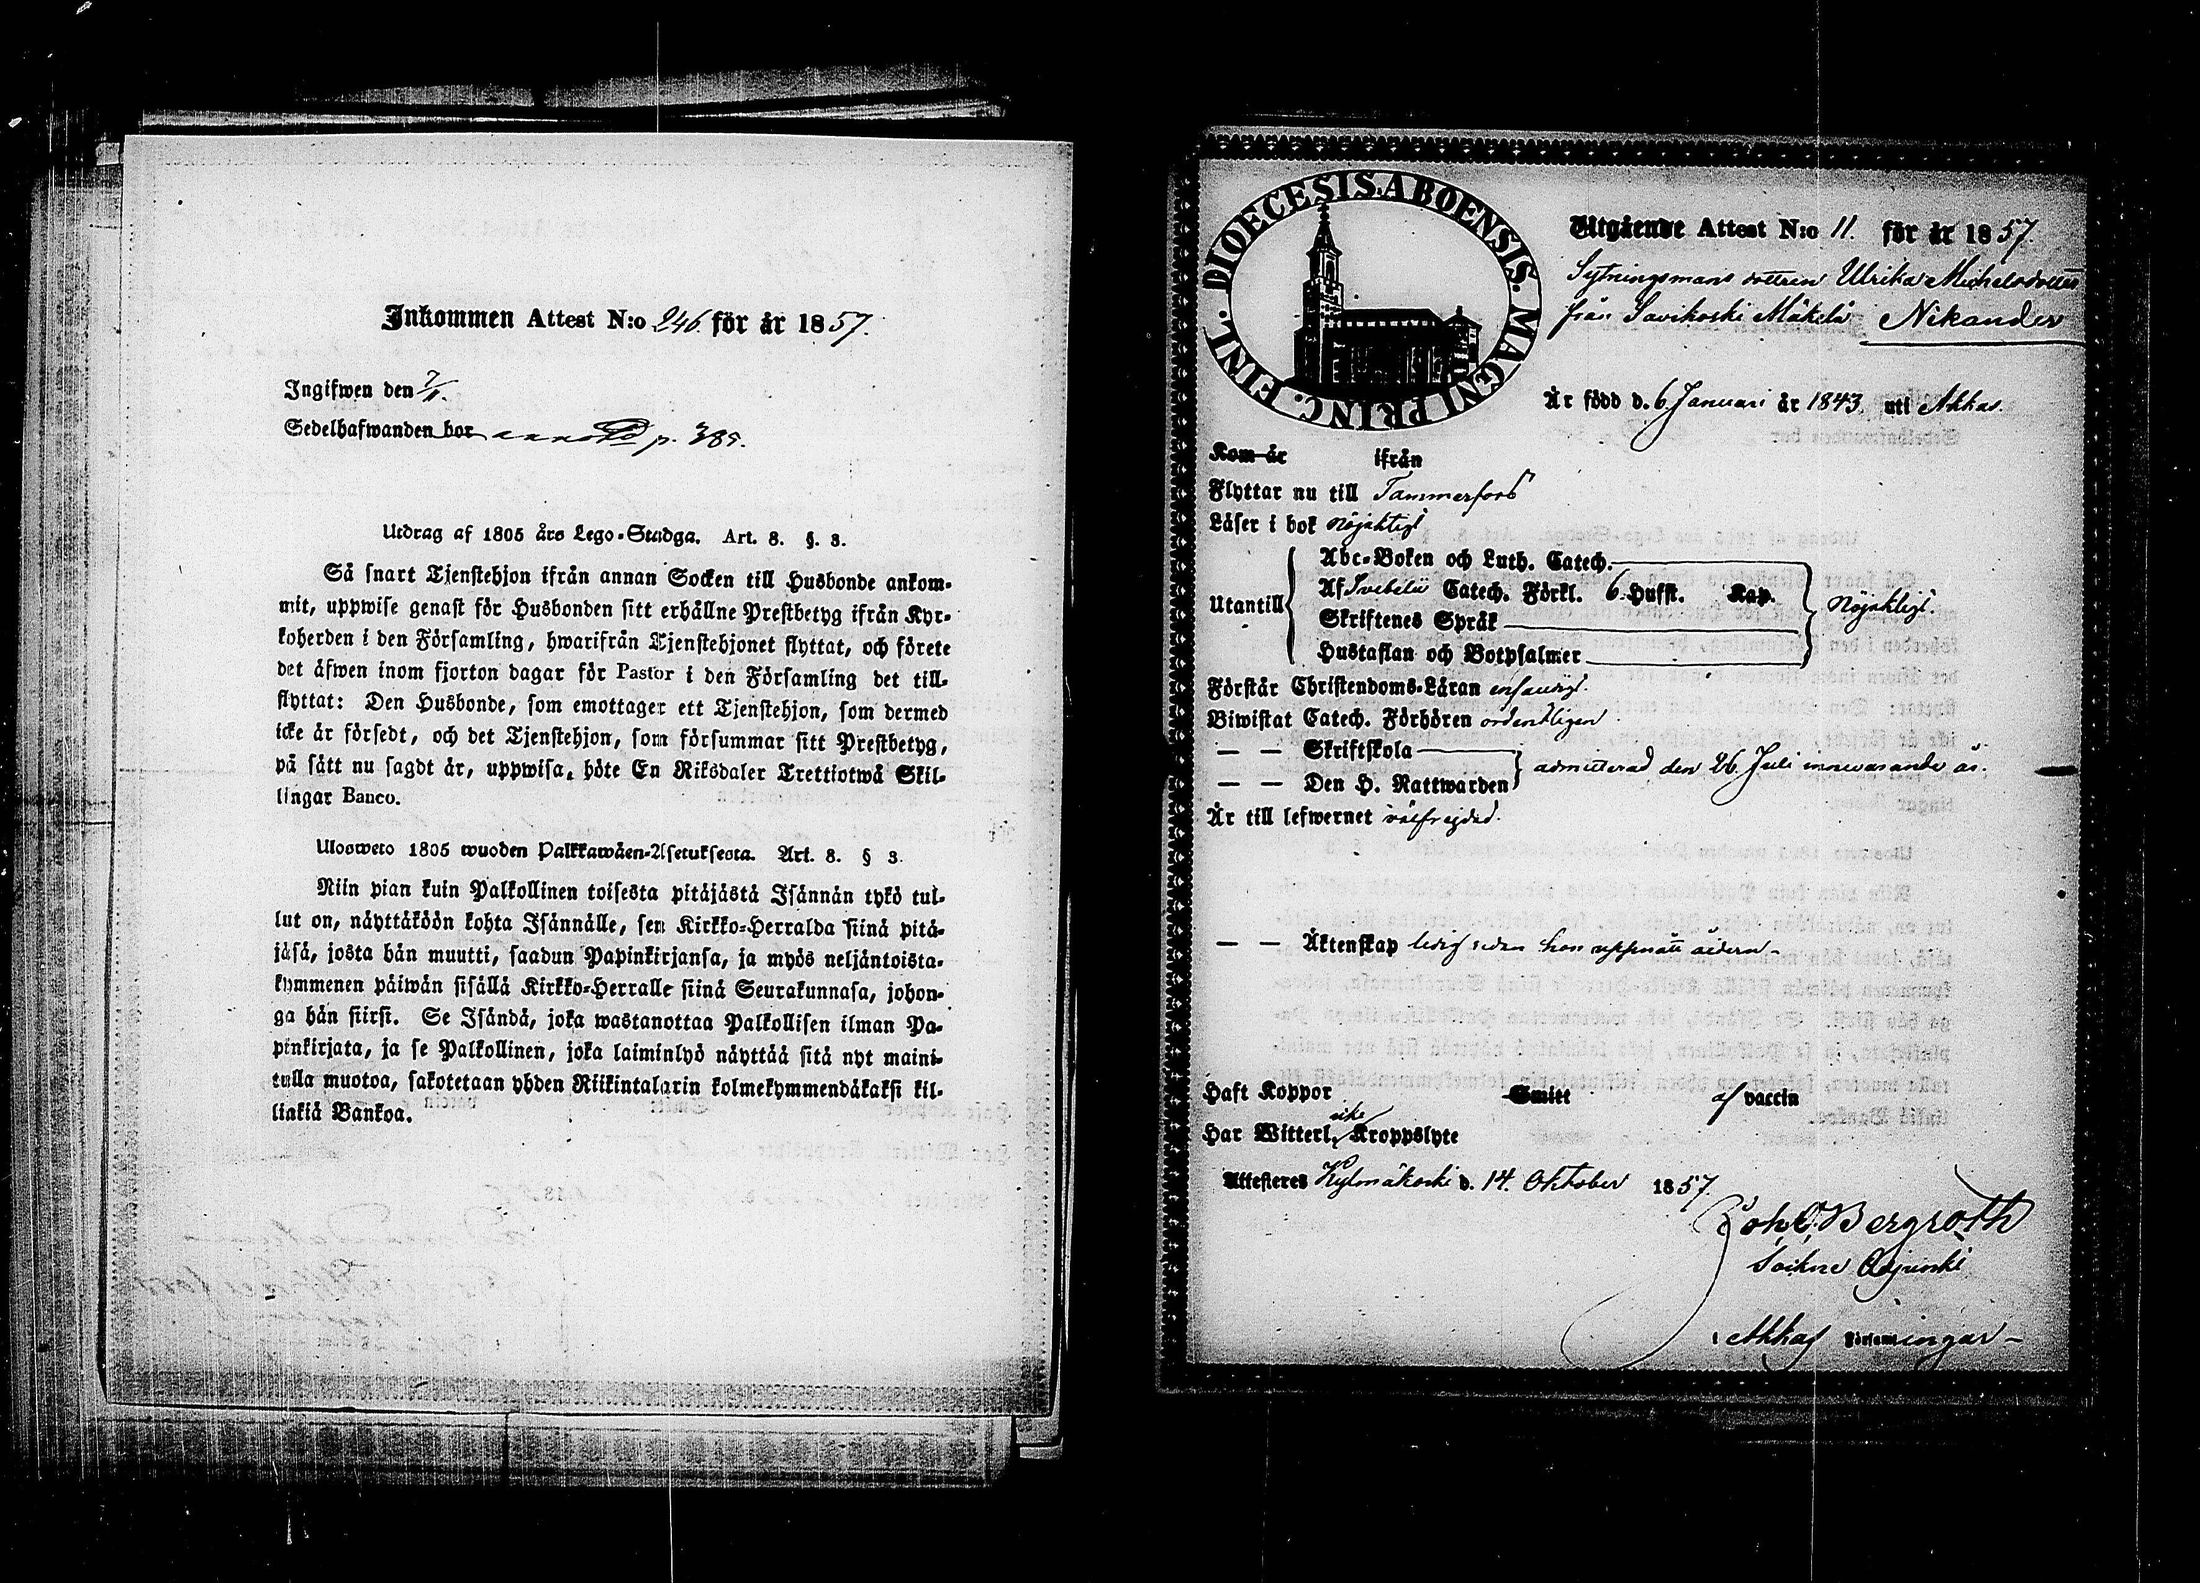 Inkommen Attest N:o 246 för år 1857.
Ingifwen den
Sedelhafwanden bor p. 385.
Utdrag af 1805 års Lego-Stadga. Art. 8. §. 3.
Så snart Tjenstehjon ifrån annan Socken till Husbonde ankom-
mit, uppwise genast för Husbonden sitt erhållne Prestbetyg ifrån Kyr-
koherden i den Församling, hwarifrån Tjenstehjonet flyttat, och förete
det äfwen inom fjorton dagar för Pastor i den Församling det till-
flyttat: Den Husbonde, som emottager ett Tjenstehjon, som dermed
icke är försedt, och det Tjenstehjon, som försummar sitt Prestbetyg,
på sätt nu sagdt är, uppwisa, böte En Riksdaler Trettiotwå Skil-
lingar Banco.
Ulosweto 1805 wuoden Palkkawäen-Asetuksesta. Art. 8. § 3.
Niin pian kuin Palkollinen toisesta pitäjästä Isännän tykö tul-
lut on, näyttäköön kohta Isännälle, sen Kirkko-Herralda siinä pitä-
jäsä, josta hän muutti, saadun Papinkirjansa, ja myös neljäntoista-
kymmenen päiwän sisällä Kirkko-Herralle siinä Seurakunnasa, johon-
ga hän siirsi. Se Isändä, joka wastanottaa Palkollisen ilman Pa-
pinkirjata, ja se Palkollinen, joka laiminlyö näyttää sitä nyt maini-
tulla muotoa, sakotetaan yhden Riikintalarin kolmekymmendäkaksi kil-
linkiä Bankoa.
DIOECESIS ABOENSIS. MAGNI PRINC. FINL.
Utgående Attest N:o 11. för år 1857.
Sytningsmans dottren Ulrika Michelsdotter
från Savikoski Mäkelä Nikander
Är född d. 6 Januari år 1843. uti Akkas.
Kom år ifrån
Flyttar nu till Tammerfors
Läser i bok nöjaktigt
Utantill
Abc-Boken och Luth. Catech.
Af Svebelii Catech. Förkl. 6. Hufst. Kap.
Skriftenes Språk
Hustaflan och Botpsalmer
nöjaktigt.
Förstår Christendoms-Läran enfaldigt.
Biwistat Catech. Förhören ordentligen
— — Skriftskola
— — Den H. Nattwarden
admitterad den 26. Juli innevarande år.
Är till lefwernet välfrejdad.
— — Äktenskap ledig sedan hon uppnått åldern
Haft Koppor Smitt af vaccin
Har Witterl. icke Kroppslyte
Attesteres Kylmäkoski d. 14. Oktober 1857.
Joh. Bergroth
Sockne Adjunkt
i Akkas Församlingar